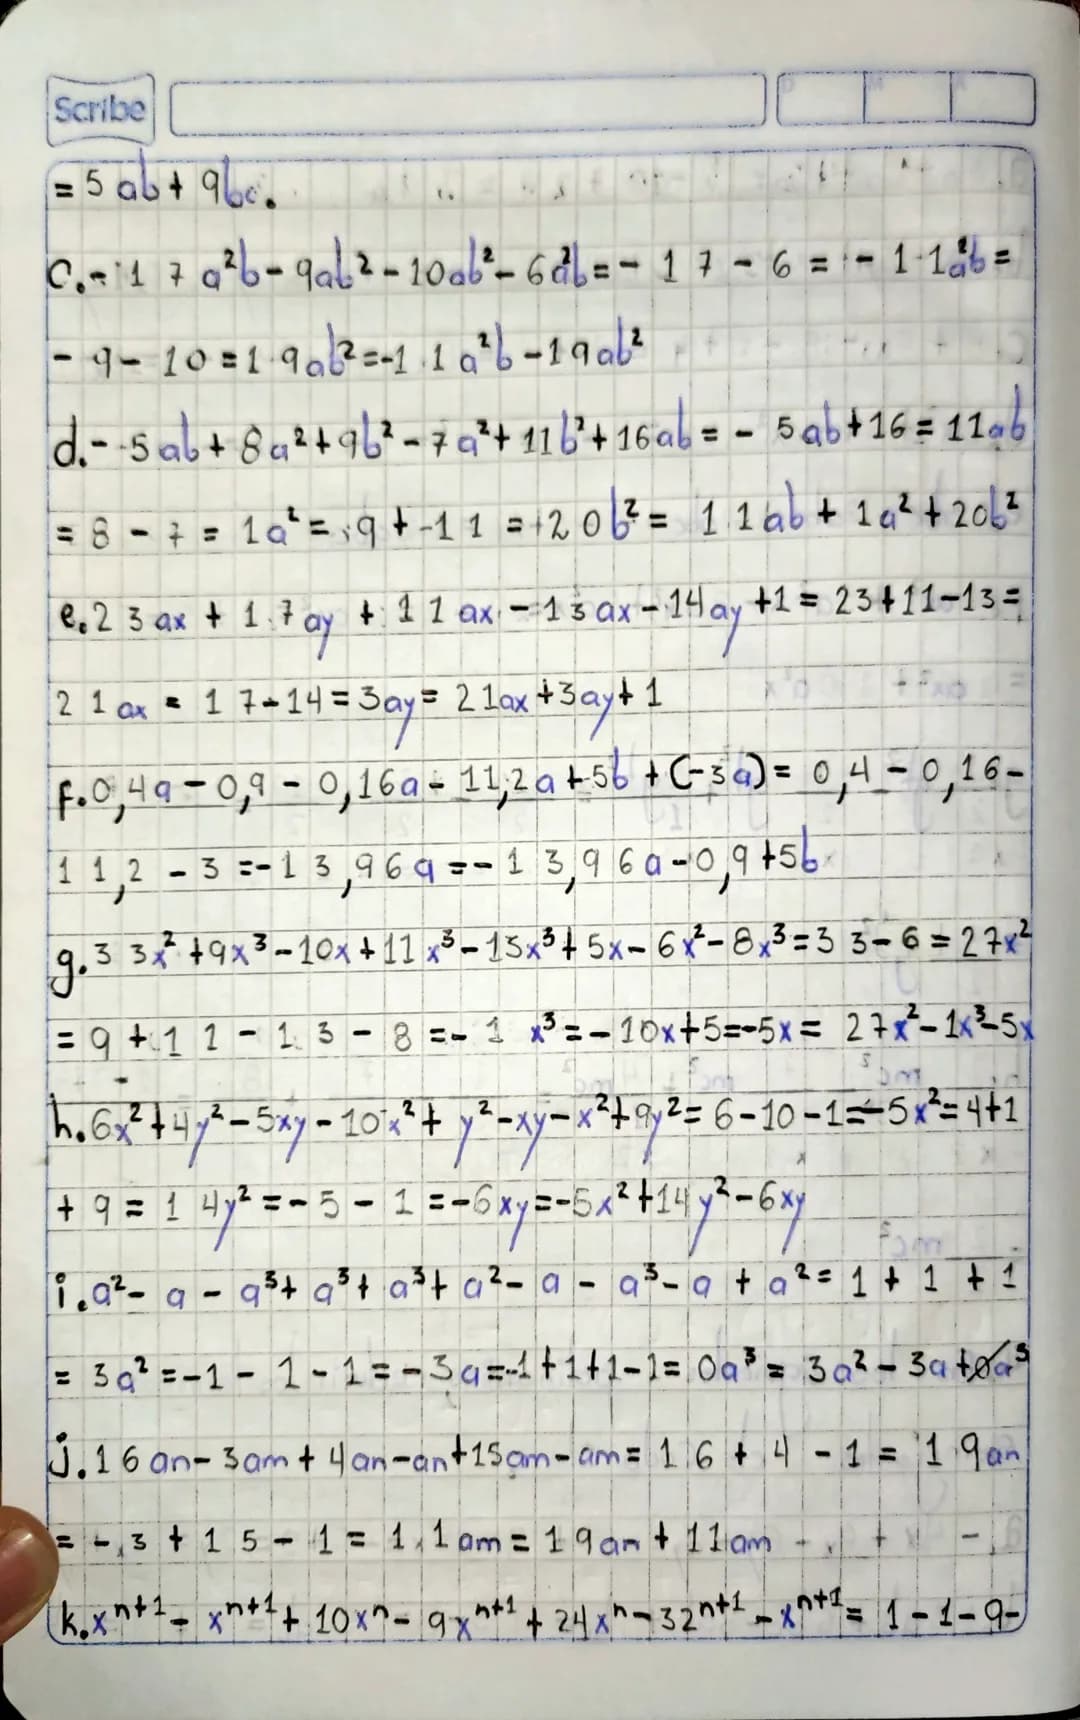 Scribe
= 5 ab + 9bc.
C.- 17 a²b - 9ab² - 10ab² - 6a²b = - 17 - 6 = - 11a²b =
- 9 - 10 = 19ab² = -11a²b - 19ab²
d.- -5ab + 8a² + 9b² - 7a² + 11b² + 16ab = - 5ab + 16 = 11ab
= 8 - 7 = 1a² = 9 + -11 = +20b² = 11ab + 1a² + 20b²
e. 23ax + 17ay + 11ax - 13ax - 14ay + 1 = 23 + 11 - 13 =
21ax = 17 - 14 = 3ay = 21ax + 3ay + 1
f. 0,4a - 0,9 - 0,16a - 11,2a + 5b + (-3a) = 0,4 - 0,16 -
11,2 - 3 = -13,96a = - 13,96a - 0,9 + 5b
g. 33x² + 9x³ - 10x + 11x³ - 13x³ + 5x - 6x² - 8x³ = 33 - 6 = 27x²
= 9 + 11 - 13 - 8 = - 1 x³ = - 10x + 5 = -5x = 27x² - 1x³ - 5x
h. 6x² + 4y² - 5xy - 10x² + y² - xy - x² + 9y² = 6 - 10 - 1 = -5x² = 4 + 1
+ 9 = 14y² = - 5 - 1 = -6xy = -5x² + 14y² - 6xy
i. a² - a - a³ + a³ + a³ + a² - a - a³ - a + a² = 1 + 1 + 1
= 3a² = -1 - 1 - 1 = -3a = -1 + 1 + 1 - 1 = 0a³ = 3a² - 3a + 0a³
j. 16an - 3am + 4an - an + 15am - am = 16 + 4 - 1 = 19an
= -3 + 15 - 1 = 11am = 19an + 11am
k. xⁿ⁺¹ - xⁿ⁺¹ + 10xⁿ - 9xⁿ⁺¹ + 24xⁿ - 32ⁿ⁺¹ - xⁿ⁺¹ = 1 - 1 - 9 -